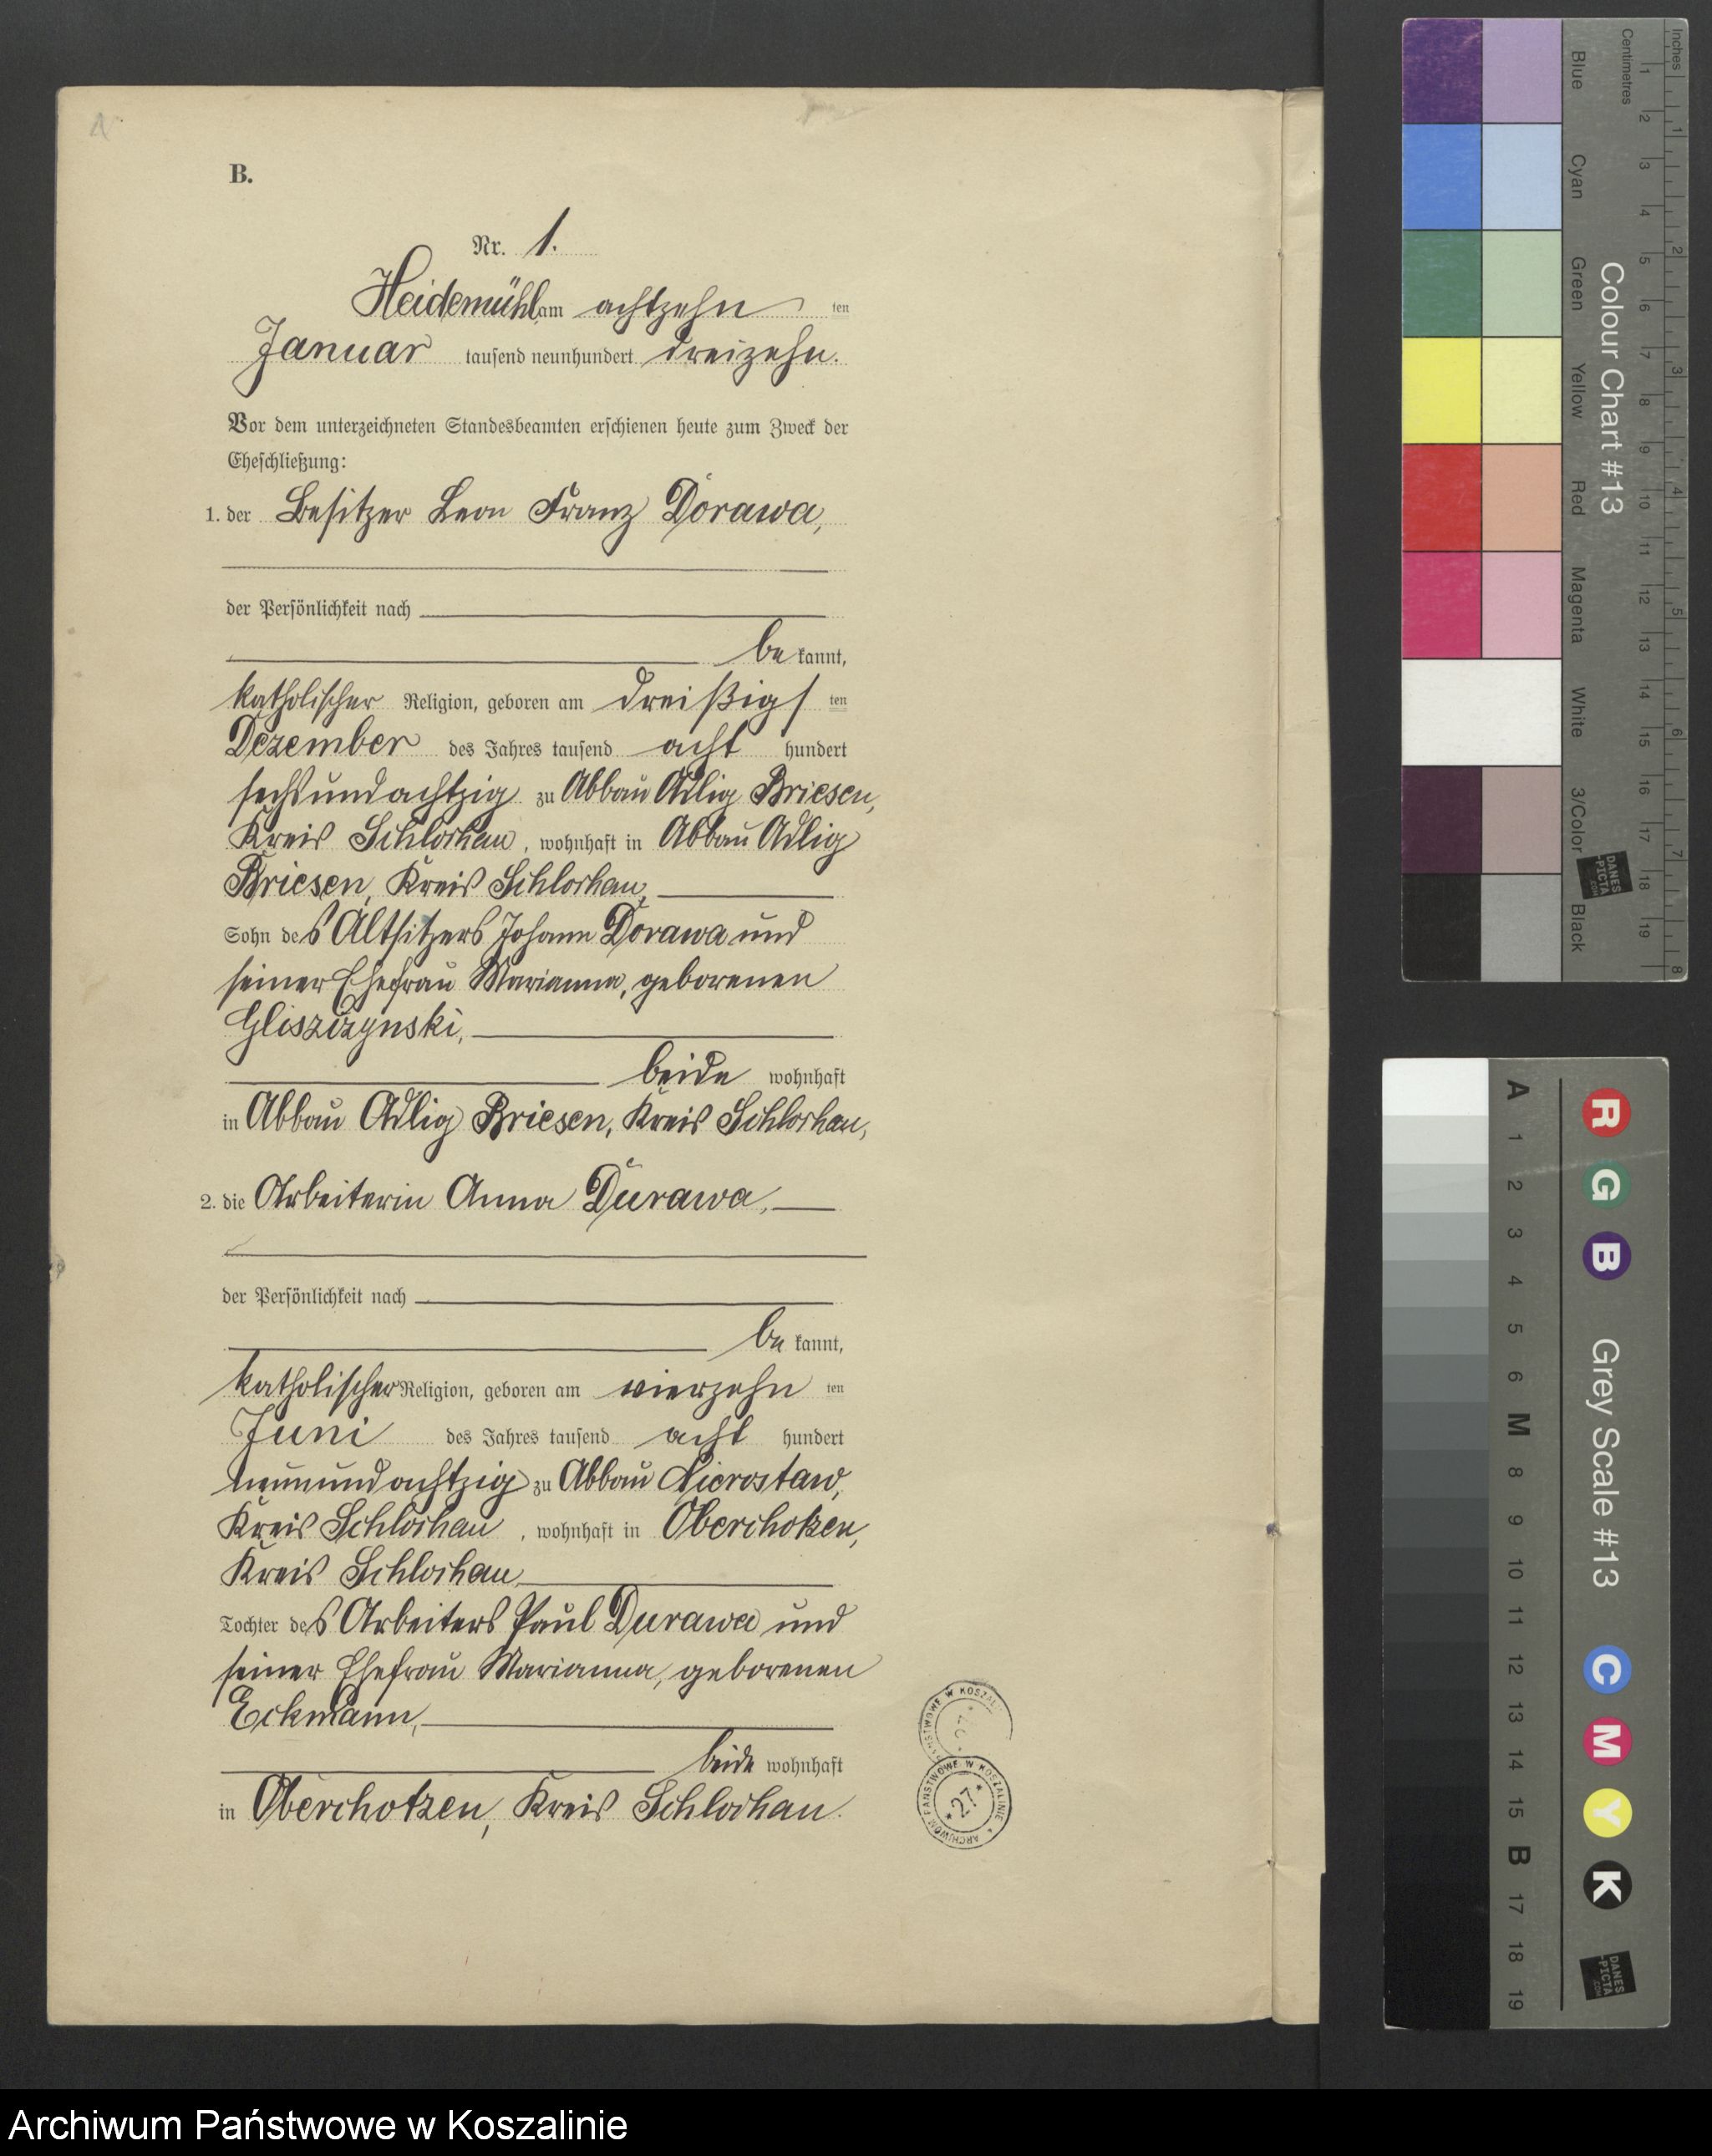 B.
Nr. 1.
Heidemühl am achtzehn ten
Januar tausend neunhundert dreizehn.
Vor dem unterzeichneten Standesbeamten erschienen heute zum Zweck der
Eheschließung:
1. der Besitzer Leon Franz Dorawa,
der Persönlichkeit nach
be kannt,
katholischer Religion, geboren am dreißigs ten
Dezember des Jahres tausend acht hundert
sechsundachtzig zu Abbau Adlig Briesen,
Kreis Schlochau, wohnhaft in Abbau Adlig
Briesen, Kreis Schlochau,
Sohn des Altsitzers Johann Dorawa und
seiner Ehefrau Marianna, geborenen
Gliszczynski,
beide wohnhaft
in Abbau Adlig Briesen, Kreis Schlochau,
2. die Arbeiterin Anna Durawa,
der Persönlichkeit nach
be kannt,
katholischer Religion, geboren am vierzehn ten
Juni des Jahres tausend acht hundert
neunundachtzig zu Abbau Nierostaw,
Kreis Schlochau, wohnhaft in Oberchotzen,
Kreis Schlochau
Tochter des Arbeiters Paul Durawa und
seiner Ehefrau Marianna, geborenen
Eckmann,
beide wohnhaft
in Oberchotzen, Kreis Schlochau.
ARCHIWUM PAŃSTWOWE W KOSZALINIE
* 27 *
Inches
Centimetres
1 2 3 4 5 6 7 8
1 2 3 4 5 6 7 8 9 10 11 12 13 14 15 16 17 18 19
Colour Chart #13
Blue
Cyan
Green
Yellow
Red
Magenta
White
3/Color
Black
DANES
-PICTA
.COM
A 1 2 3 4 5 6 M 8 9 10 11 12 13 14 15 B 17 18 19
R G B
Grey Scale #13
C M Y K
DANES
-PICTA
.COM
Archiwum Państwowe w Koszalinie